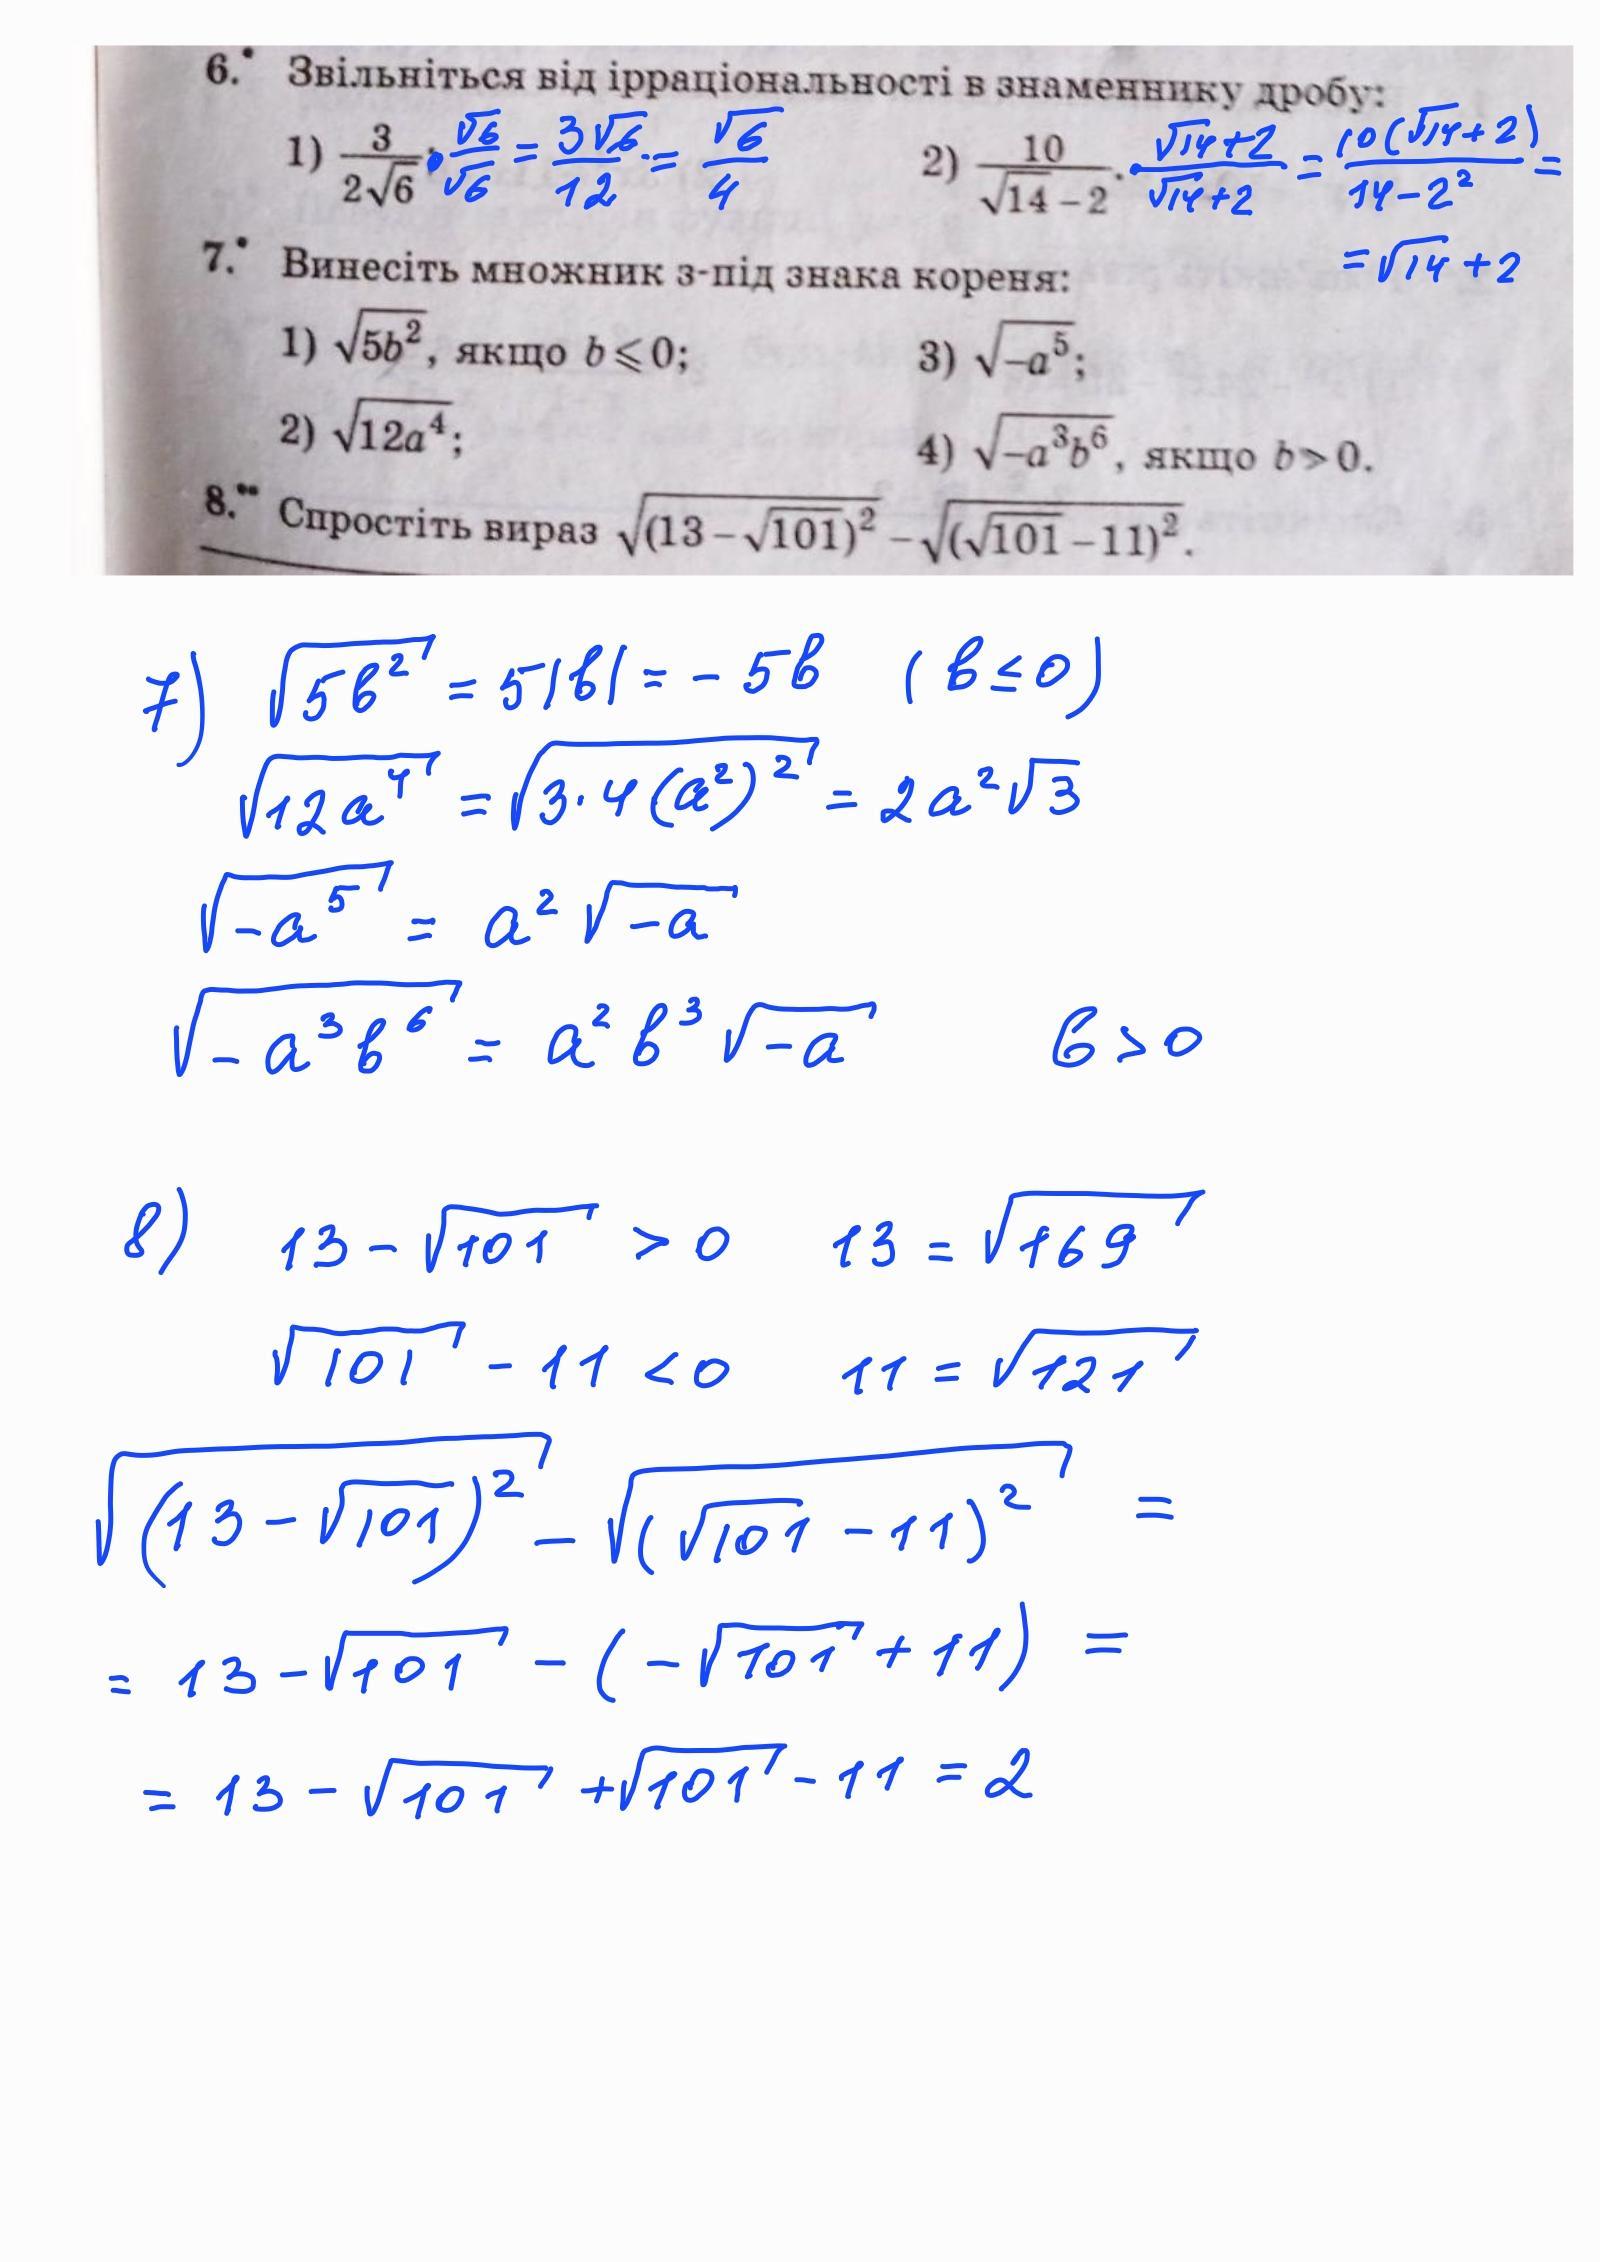 6.• Звільніться від ірраціональності в знаменнику дробу:
1) 3/(2√6) · √6/√6 = 3√6/12 = √6/4
2) 10/(√14 − 2) · (√14+2)/(√14+2) = 10(√14+2)/(14−2²) =
= √14 + 2
7.• Винесіть множник з-під знака кореня:
1) √(5b²), якщо b ⩽ 0;
3) √(−a⁵);
2) √(12a⁴);
4) √(−a³b⁶), якщо b > 0.
8.•• Спростіть вираз √((13 − √101)²) − √((√101 − 11)²).
7) √(5b²) = 5|b| = − 5b (b ≤ 0)
√(12a⁴) = √(3·4(a²)²) = 2a²√3
√(−a⁵) = a²√(−a)
√(−a³b⁶) = a²b³√(−a) b > 0
8) 13 − √101 > 0 13 = √169
√101 − 11 < 0 11 = √121
√((13 − √101)²) − √((√101 − 11)²) =
= 13 − √101 − (− √101 + 11) =
= 13 − √101 + √101 − 11 = 2